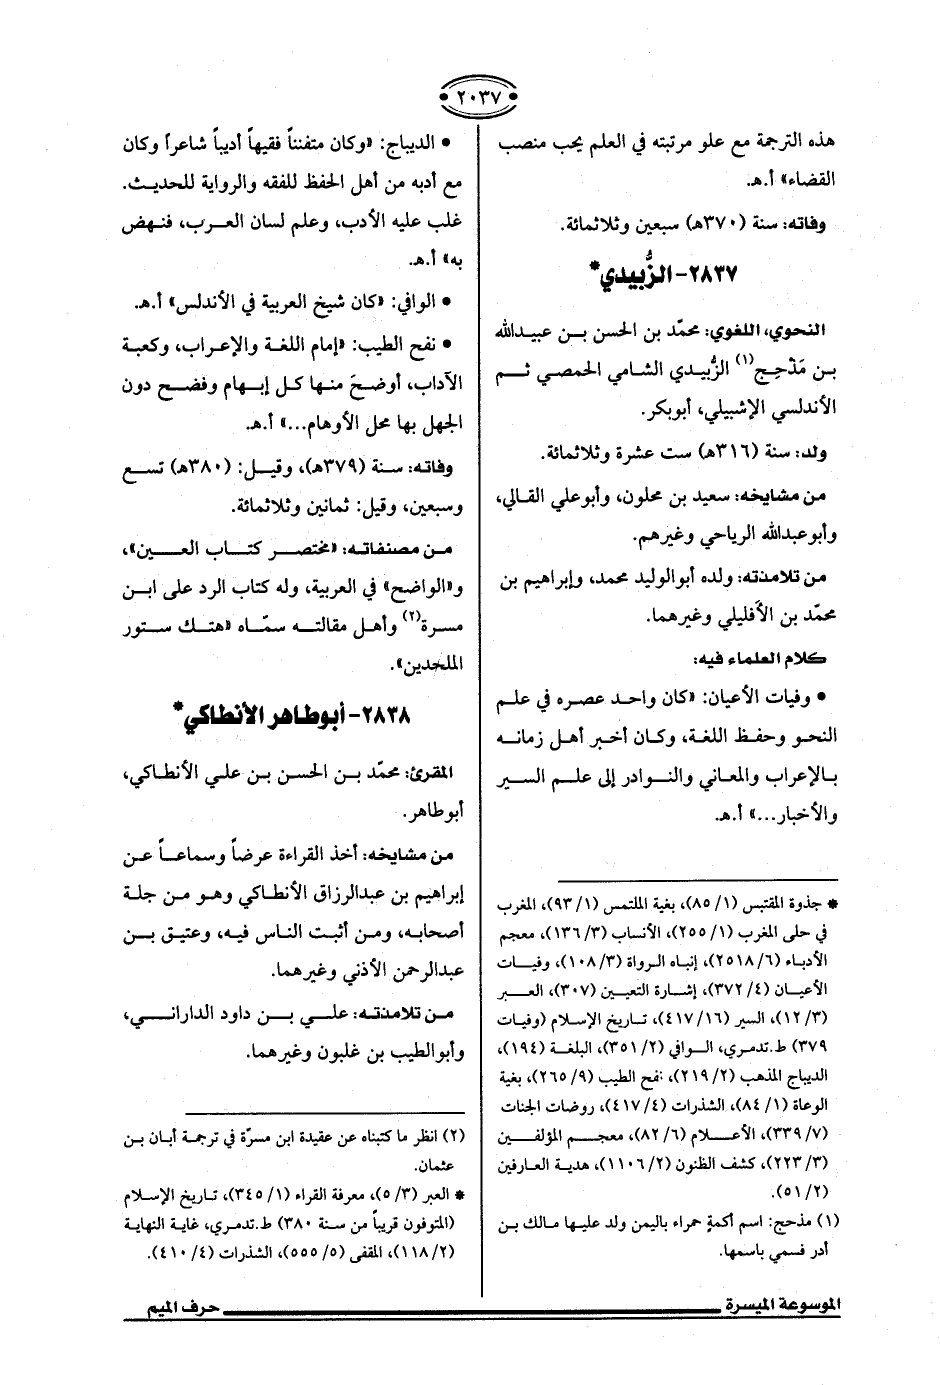 ٢٠٣٧
هذه الترجمة مع علو مرتبته في العلم يحب منصب
القضاء» أ.هـ.
وفاته: سنة (٣٧٠هـ) سبعين وثلاثمائة.
٢٨٣٧- الزُّبيدي*
النحوي، اللغوي: محمّد بن الحسن بن عبيدالله
بن مَذْحِج(١) الزُّبيدي الشامي الحمصي ثم
الأندلسي الإشبيلي، أبوبكر.
ولد: سنة (٣١٦هـ) ست عشرة وثلاثمائة.
من مشايخه: سعيد بن محلون، وأبوعلي القالي،
وأبوعبدالله الرياحي وغيرهم.
من تلامذته: ولده أبوالوليد محمد، وإبراهيم بن
محمّد بن الأَفليلي وغيرهما.
كلام العلماء فيه:
• وفيات الأعيان: «كان واحد عصره في علم
النحو وحفظ اللغة، وكان أخبر أهل زمانه
بالإعراب والمعاني والنوادر إلى علم السير
والأخبار...» أ.هـ.
* جذوة المقتبس (١/ ٨٥)، بغية الملتمس (١/ ٩٣)، المغرب
في حلى المغرب (١/ ٢٥٥)، الأنساب (٣/ ١٣٦)، معجم
الأدباء (٦/ ٢٥١٨)، إنباه الرواة (٣/ ١٠٨)، وفيات
الأعيان (٤/ ٣٧٢)، إشارة التعيين (٣٠٧)، العبر
(٣/ ١٢)، السير (١٦/ ٤١٧)، تاريخ الإسلام (وفيات
٣٧٩) ط.تدمري، الوافي (٢/ ٣٥١)، البلغة (١٩٤)،
الديباج المذهب (٢/ ٢١٩)، نفح الطيب (٩/ ٢٦٥)، بغية
الوعاة (١/ ٨٤)، الشذرات (٤/ ٤١٧)، روضات الجنات
(٧/ ٣٣٩)، الأعلام (٦/ ٨٢)، معجم المؤلفين
(٣/ ٢٢٣)، كشف الظنون (٢/ ١١٠٦)، هدية العارفين
(٢/ ٥١).
(١) مذحج: اسم أكمةٍ حمراء باليمن ولد عليها مالك بن
أدر فسمي باسمها.
• الديباج: «وكان متفنناً فقيهاً أديباً شاعراً وكان
مع أدبه من أهل الحفظ للفقه والرواية للحديث.
غلب عليه الأدب، وعلم لسان العرب، فنهض
به» أ.هـ.
• الوافي: «كان شيخ العربية في الأندلس» أ.هـ.
• نفح الطيب: «إمام اللغة والإعراب، وكعبة
الآداب، أوضحَ منها كل إبهام وفضح دون
الجهل بها محل الأوهام...» أ.هـ.
وفاته: سنة (٣٧٩هـ)، وقيل: (٣٨٠هـ) تسع
وسبعين، وقيل: ثمانين وثلاثمائة.
من مصنفاته: «مختصر كتاب العين»،
و«الواضح» في العربية، وله كتاب الرد على ابن
مسرة(٢) وأهل مقالته سمّاه «هتك ستور
الملحدين».
٢٨٣٨- أبوطاهر الأنطاكي*
المقرئ: محمّد بن الحسن بن علي الأنطاكي،
أبوطاهر.
من مشايخه: أخذ القراءة عرضاً وسماعاً عن
إبراهيم بن عبدالرزاق الأنطاكي وهو من جلة
أصحابه، ومن أثبت الناس فيه، وعتيق بن
عبدالرحمن الأذني وغيرهما.
من تلامذته: علي بن داود الداراني،
وأبوالطيب بن غلبون وغيرهما.
(٢) انظر ما كتبناه عن عقيدة ابن مسرّة في ترجمة أبان بن
عثمان.
* العبر (٣/ ٥)، معرفة القراء (١/ ٣٤٥)، تاريخ الإسلام
(المتوفون قريباً من سنة ٣٨٠) ط.تدمري، غاية النهاية
(٢/ ١١٨)، المقفى (٥/ ٥٥٥)، الشذرات (٤/ ٤١٠).
الموسوعة الميسرة حرف الميم